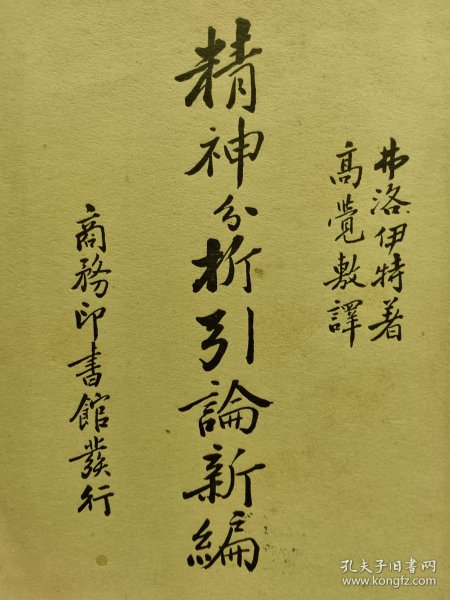 弗洛伊特著
高覺敷譯
精神分析引論新編
商務印書館發行
孔夫子旧书网
www.kongfz.com